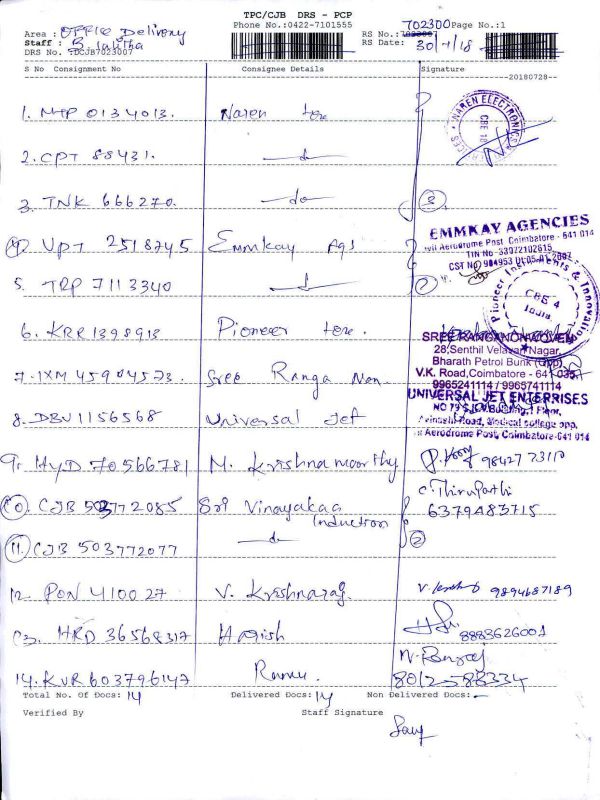 TPC/CJB DRS - PCP
Phone No.:0422-7101555
702300 Page No.:1
Area : Office Delivery
RS No.:702307
Staff : B. Lalitha
RS Date: 30/7/18
DRS No. :DCJB7023007
S No Consignment No Consignee Details Signature
20180728
1. MTP 0134013. Naren tore
NAREN ELECTRONICS
CBE 18
2. CPT 88431. do
3. TNK 666270. do 3.
4. VPT 2518745 Emmkay Ags
EMMKAY AGENCIES
Civil Aerodrome Post, Coimbatore - 641 014
TIN No 33072102615
CST No 984953 Dt.05.01.2007
5. TRP 7113340 do
Pioneer Instruments & Innovations
CBE 4
India
6. KRR1398913 Pioneer tore.
SREE RANGA NON WOVEN
28,Senthil Velavan Nagar,
Bharath Petrol Bunk (Opp)
7. IXM 45904573. Sree Ranga Non.
V.K. Road,Coimbatore - 641 035.
9965241114 / 9965741114
UNIVERSAL JET ENTERRISES
8. DBU1156568 Universal Jet
Avinashi Road, Medical college opp,
Aerodrome Post, Coimbatore-641 014
9. HYD 70566781 M. Krishnamoorthy 98427 23110
10. CJB 503772085 Sri Vinayakaa Induction
C. Thirupathi
6379483715
11. CJB 503772077 do 2
12. PON 410027 V. Krishnaraj. 9894687189
13. HRD 36568317 Harish 8883626001
14. KVR603796147 Ramu
8012588334
Total No. Of Docs: 14 Delivered Docs: 14 Non Delivered Docs: -
Verified By Staff Signature